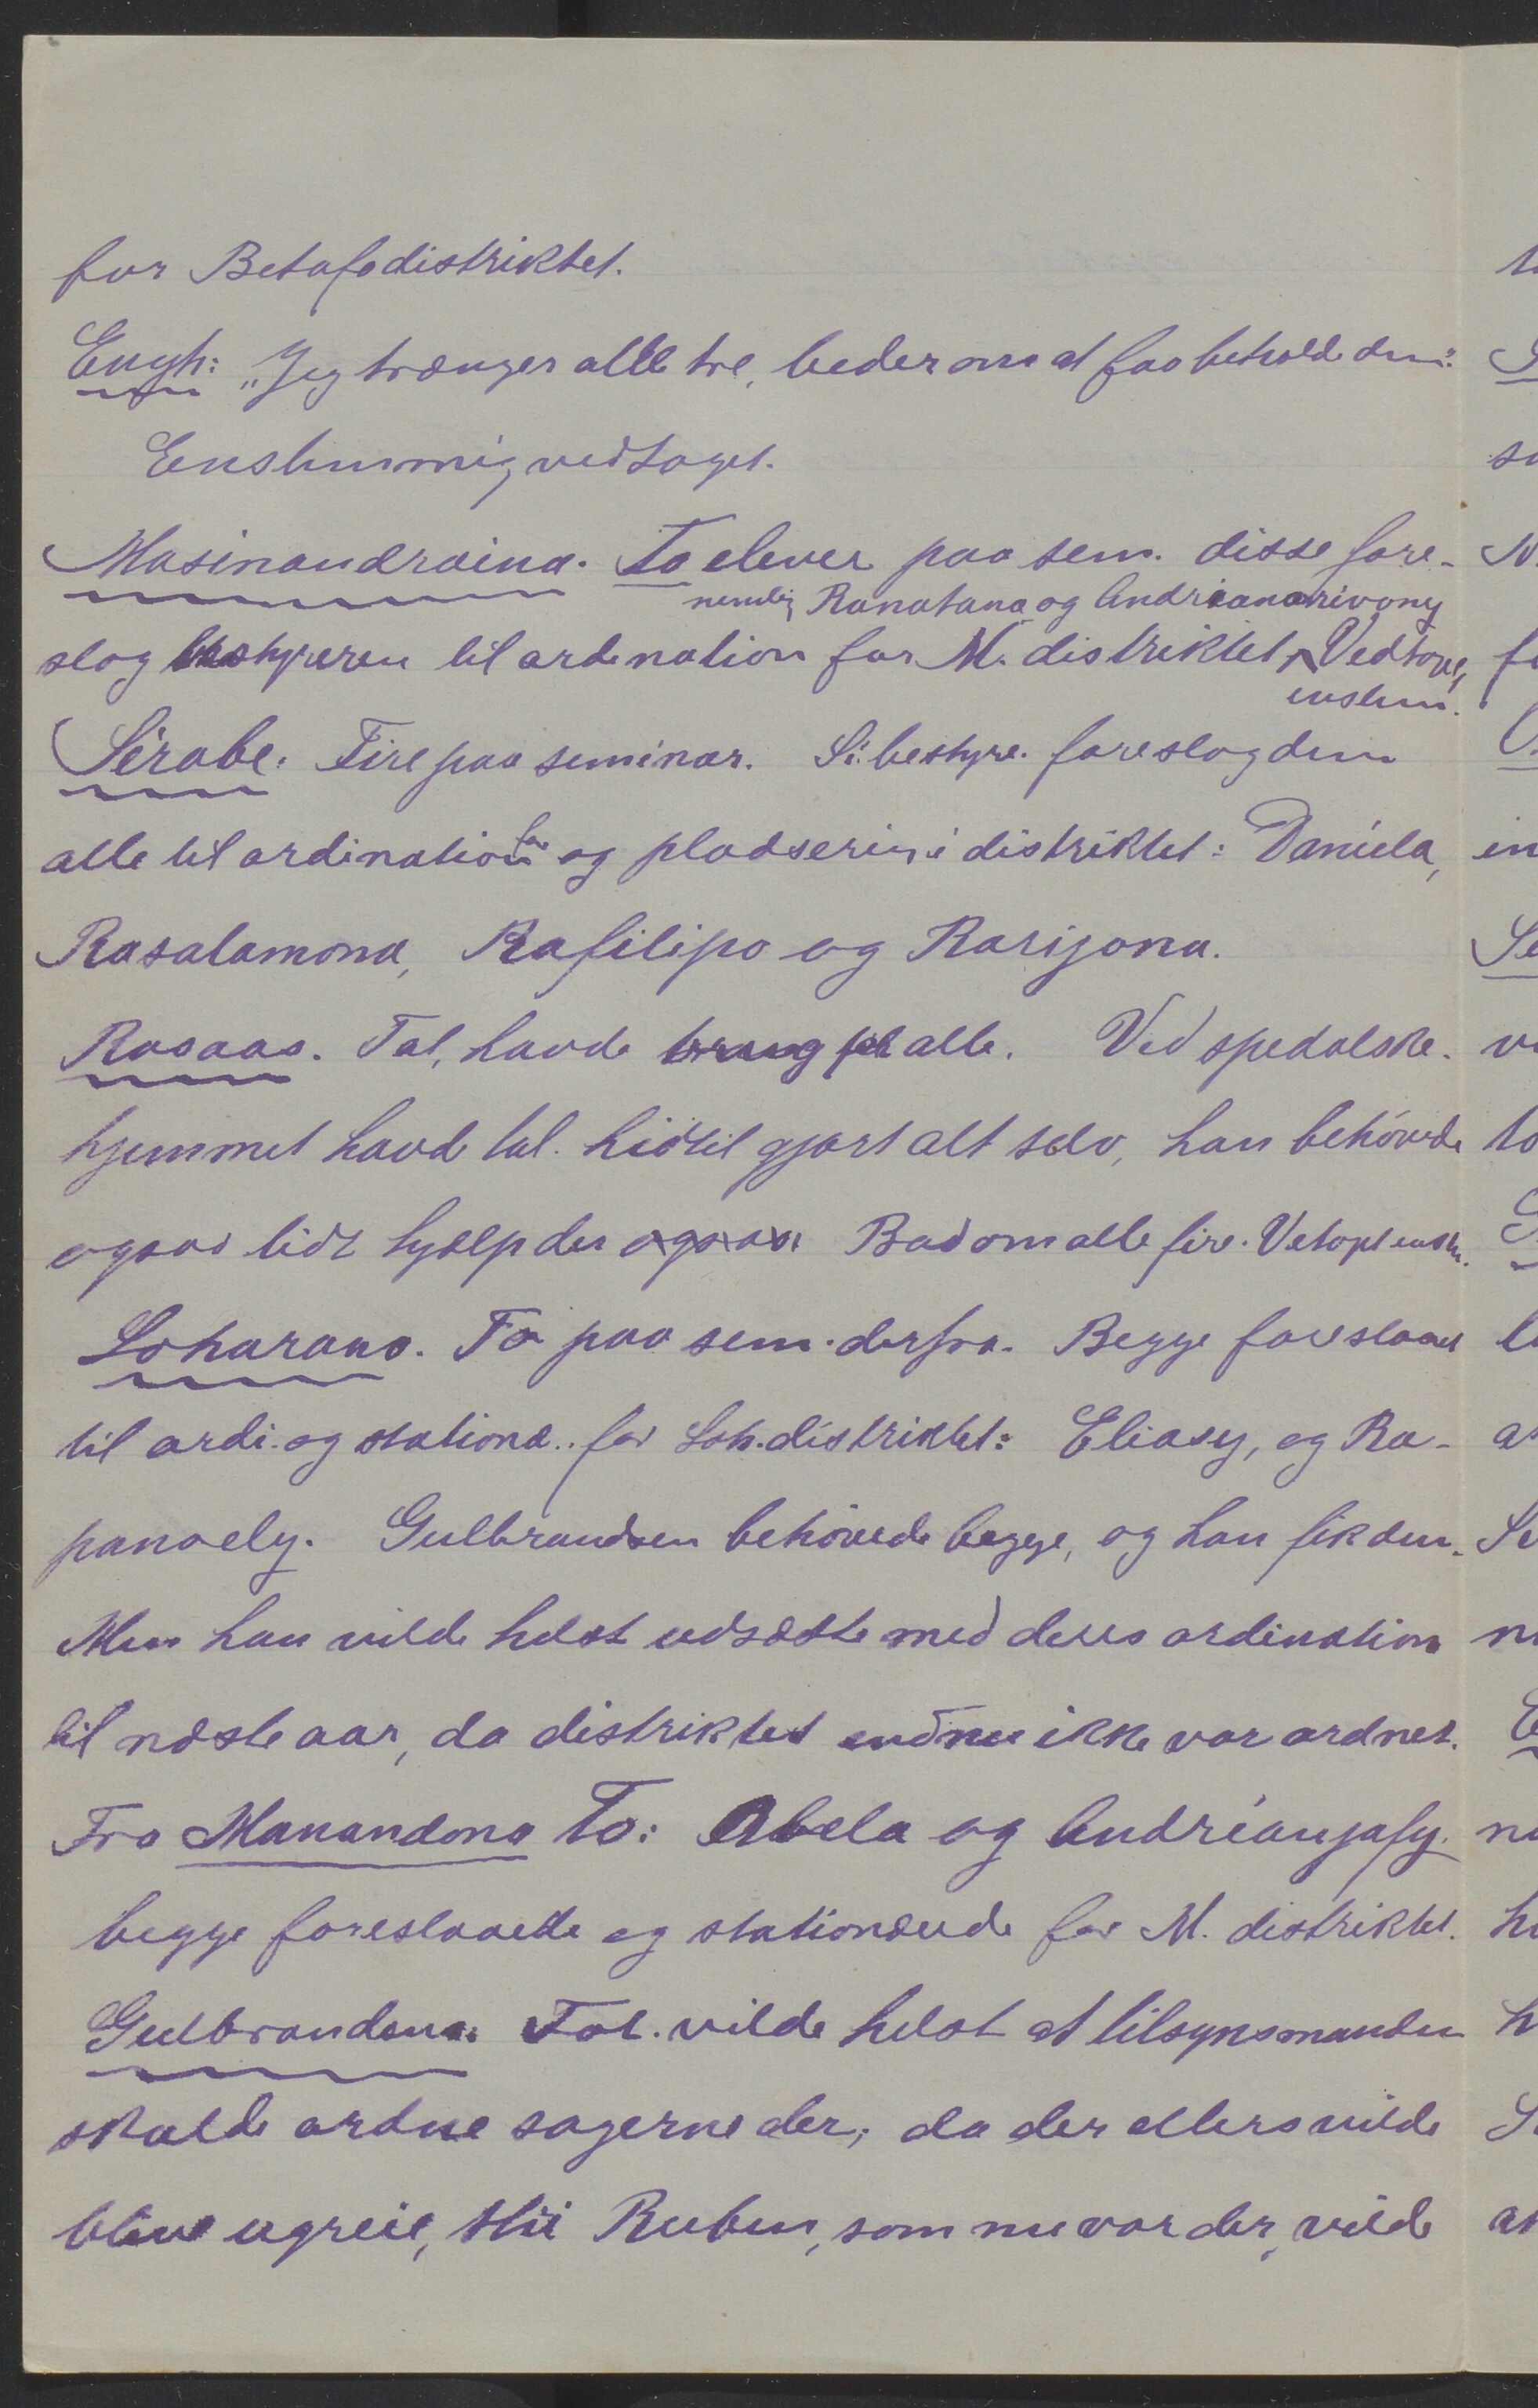 for Betafodistriktet.
Engh: „Jeg trænger alle tre, beder om at faa beholde dem."
Enstemmig vedtaget.
Masinandraina. To elever paa sem. disse fore-
nemlig Ranatana og Andrianarivony
slog bestyreren til ordination for M. distriktet, Vedtoge,
enstem.
Sirabe. Fire paa seminar. Si. bestyre. foreslog dem
alle til ordination for og pladsering i distriktet: Daniela,
Rasalamona, Rafilipo og Rarijona.
Rosaas. Tal, havde brug for alle. Ved spedalske-
hjemmet havde tal. hidtil gjort alt selv, han behövede
ogsaa lidt hjælp der ogsaa. Bad om alle fire. Vetopt enst.
Loharano. To paa sem. derfra. Begge foreslaaet
til ordi. og stationæ.. for Loh. distriktet: Eliasy, og Ra-
panoely. Gulbrandsen behövede begge, og han fik dem.
Men han vilde helst udsætte med deres ordination
til næste aar, da distriktet endnu ikke var ordnet.
Fra Manandona To: Abela og Andrianjafy.
begge foreslaaede og stationærede for M. distriktet.
Gulbrandsen: Tal. vilde helst at tilsynsmanden
skulde ordne sagerne der, da der ellers vilde
blive ugreie, thi Ruben, som nu var der, vilde